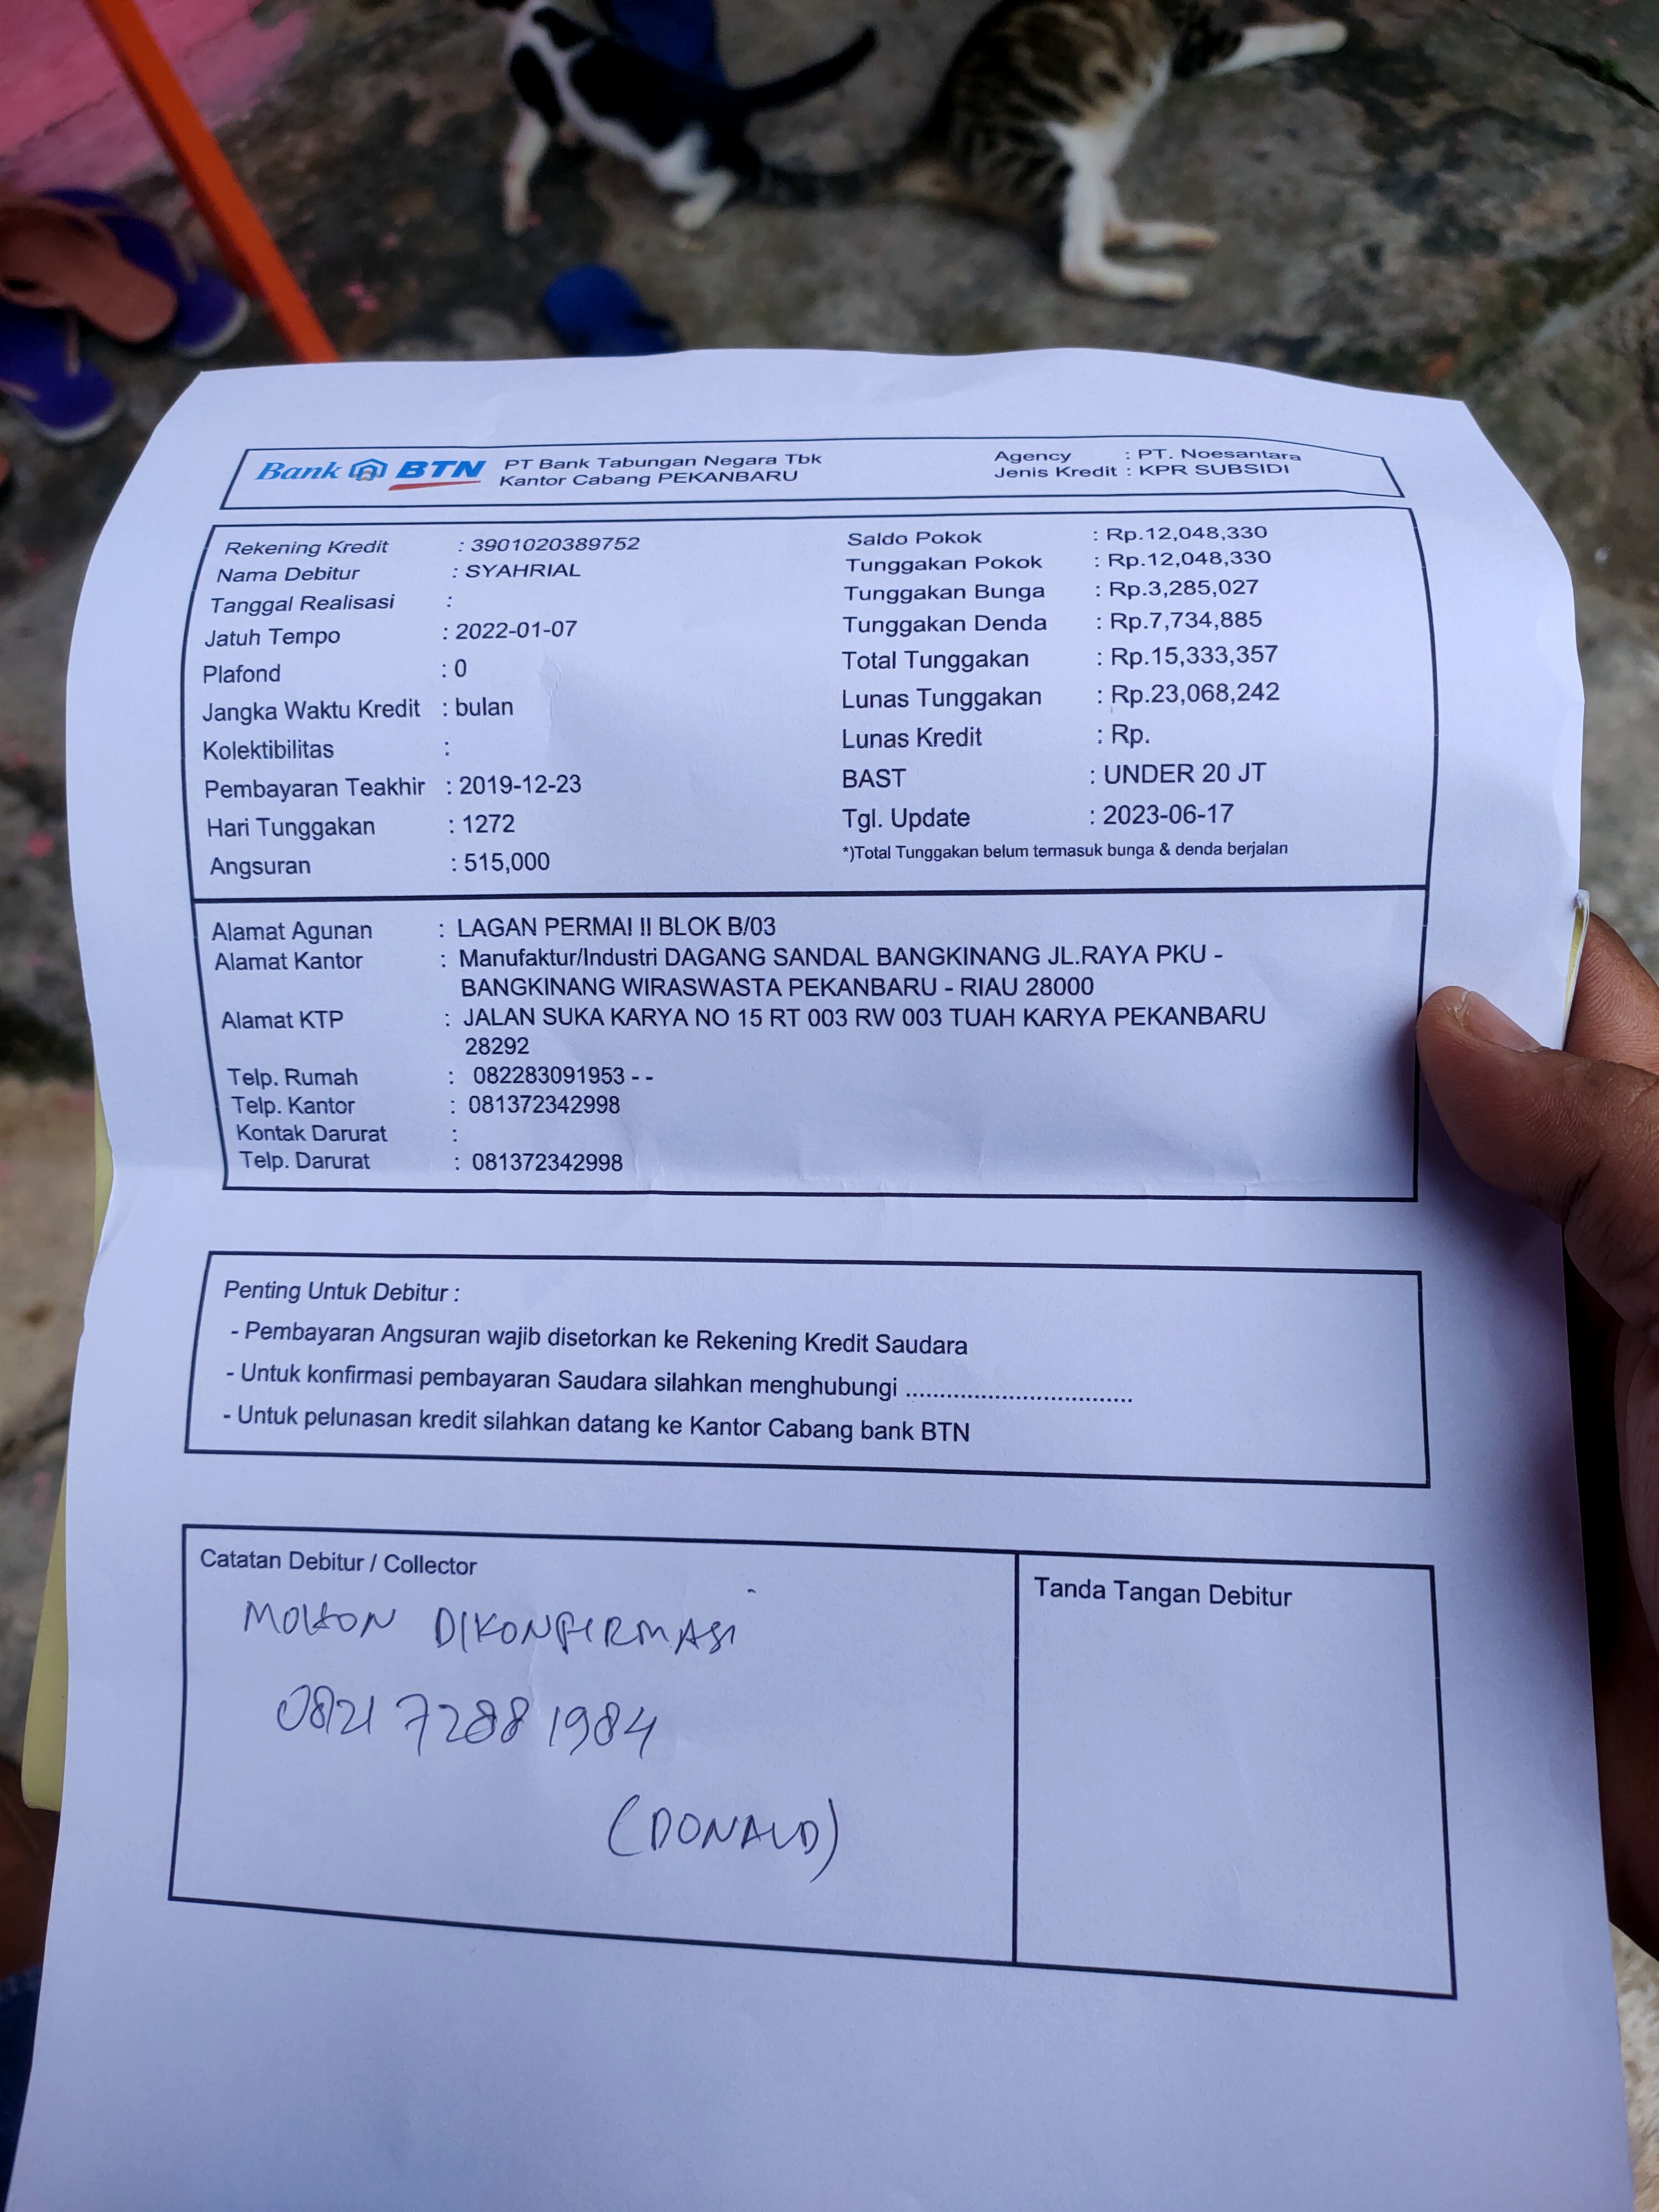 Bank BTN PT Bank Tabungan Negara Tbk
Kantor Cabang PEKANBARU
Agency : PT. Noesantara
Jenis Kredit : KPR SUBSIDI
Rekening Kredit : 3901020389752
Nama Debitur : SYAHRIAL
Tanggal Realisasi :
Jatuh Tempo : 2022-01-07
Plafond : 0
Jangka Waktu Kredit : bulan
Kolektibilitas :
Pembayaran Teakhir : 2019-12-23
Hari Tunggakan : 1272
Angsuran : 515,000
Saldo Pokok : Rp.12,048,330
Tunggakan Pokok : Rp.12,048,330
Tunggakan Bunga : Rp.3,285,027
Tunggakan Denda : Rp.7,734,885
Total Tunggakan : Rp.15,333,357
Lunas Tunggakan : Rp.23,068,242
Lunas Kredit : Rp.
BAST : UNDER 20 JT
Tgl. Update : 2023-06-17
*)Total Tunggakan belum termasuk bunga & denda berjalan
Alamat Agunan : LAGAN PERMAI II BLOK B/03
Alamat Kantor : Manufaktur/Industri DAGANG SANDAL BANGKINANG JL.RAYA PKU -
BANGKINANG WIRASWASTA PEKANBARU - RIAU 28000
Alamat KTP : JALAN SUKA KARYA NO 15 RT 003 RW 003 TUAH KARYA PEKANBARU
28292
Telp. Rumah : 082283091953 - -
Telp. Kantor : 081372342998
Kontak Darurat :
Telp. Darurat : 081372342998
Penting Untuk Debitur :
- Pembayaran Angsuran wajib disetorkan ke Rekening Kredit Saudara
- Untuk konfirmasi pembayaran Saudara silahkan menghubungi .................................
- Untuk pelunasan kredit silahkan datang ke Kantor Cabang bank BTN
Catatan Debitur / Collector
MOHON DIKONFIRMASI
0821 7288 1984
(DONALD)
Tanda Tangan Debitur